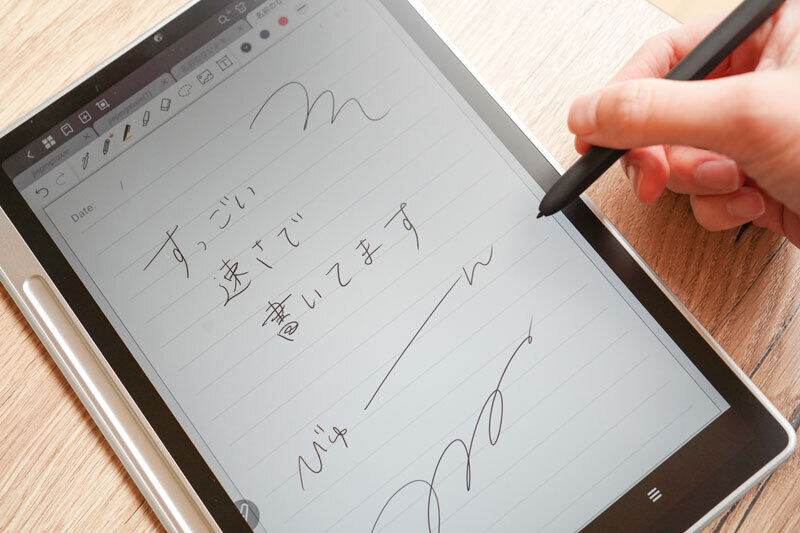 Date:
すっごい
速さで
書いてます
びゅーん